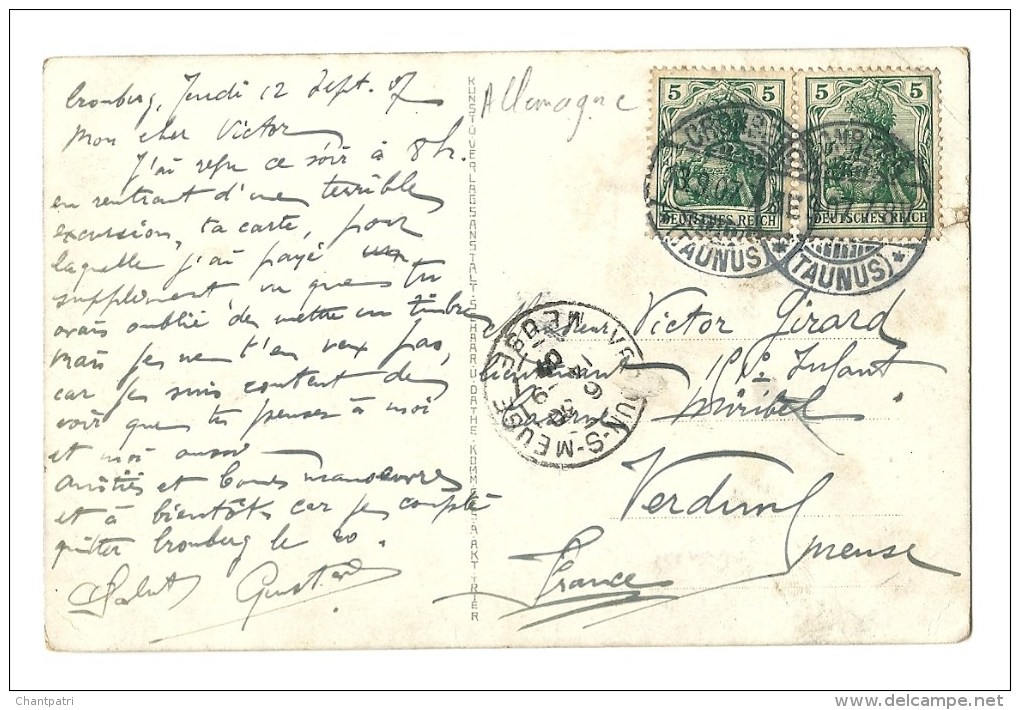 Cronberg, Jeudi 12 Sept. 07
Mon cher Victor
J'ai reçu ce soir à 8h.
en rentrant d'une terrible
excursion, ta carte, pour
laquelle j'ai payé un
supplément vu que tu
avais oublié de mettre un timbre
mais je ne t'en veux pas,
car je suis content de
voir que tu penses à moi
et moi aussi
Amitiés et bonnes manoeuvres
et à bientôt car je compte
quitter Cronberg le 20.
Salut Gustave
KUNST U. VERLAGSANSTALT SCHAAR U. DATHE · KOMM. GES. A. AKT. TRIER
Allemagne
5 5
5 5
DEUTSCHES REICH
DEUTSCHES REICH
(TAUNUS)
(TAUNUS)
Monsieur Victor Girard
Lieutenant Infant
Caserne Miribel
Verdun
Meuse
France
VERDUN-S-MEUSE
MEUSE
Chantpatri
www.delcampe.net